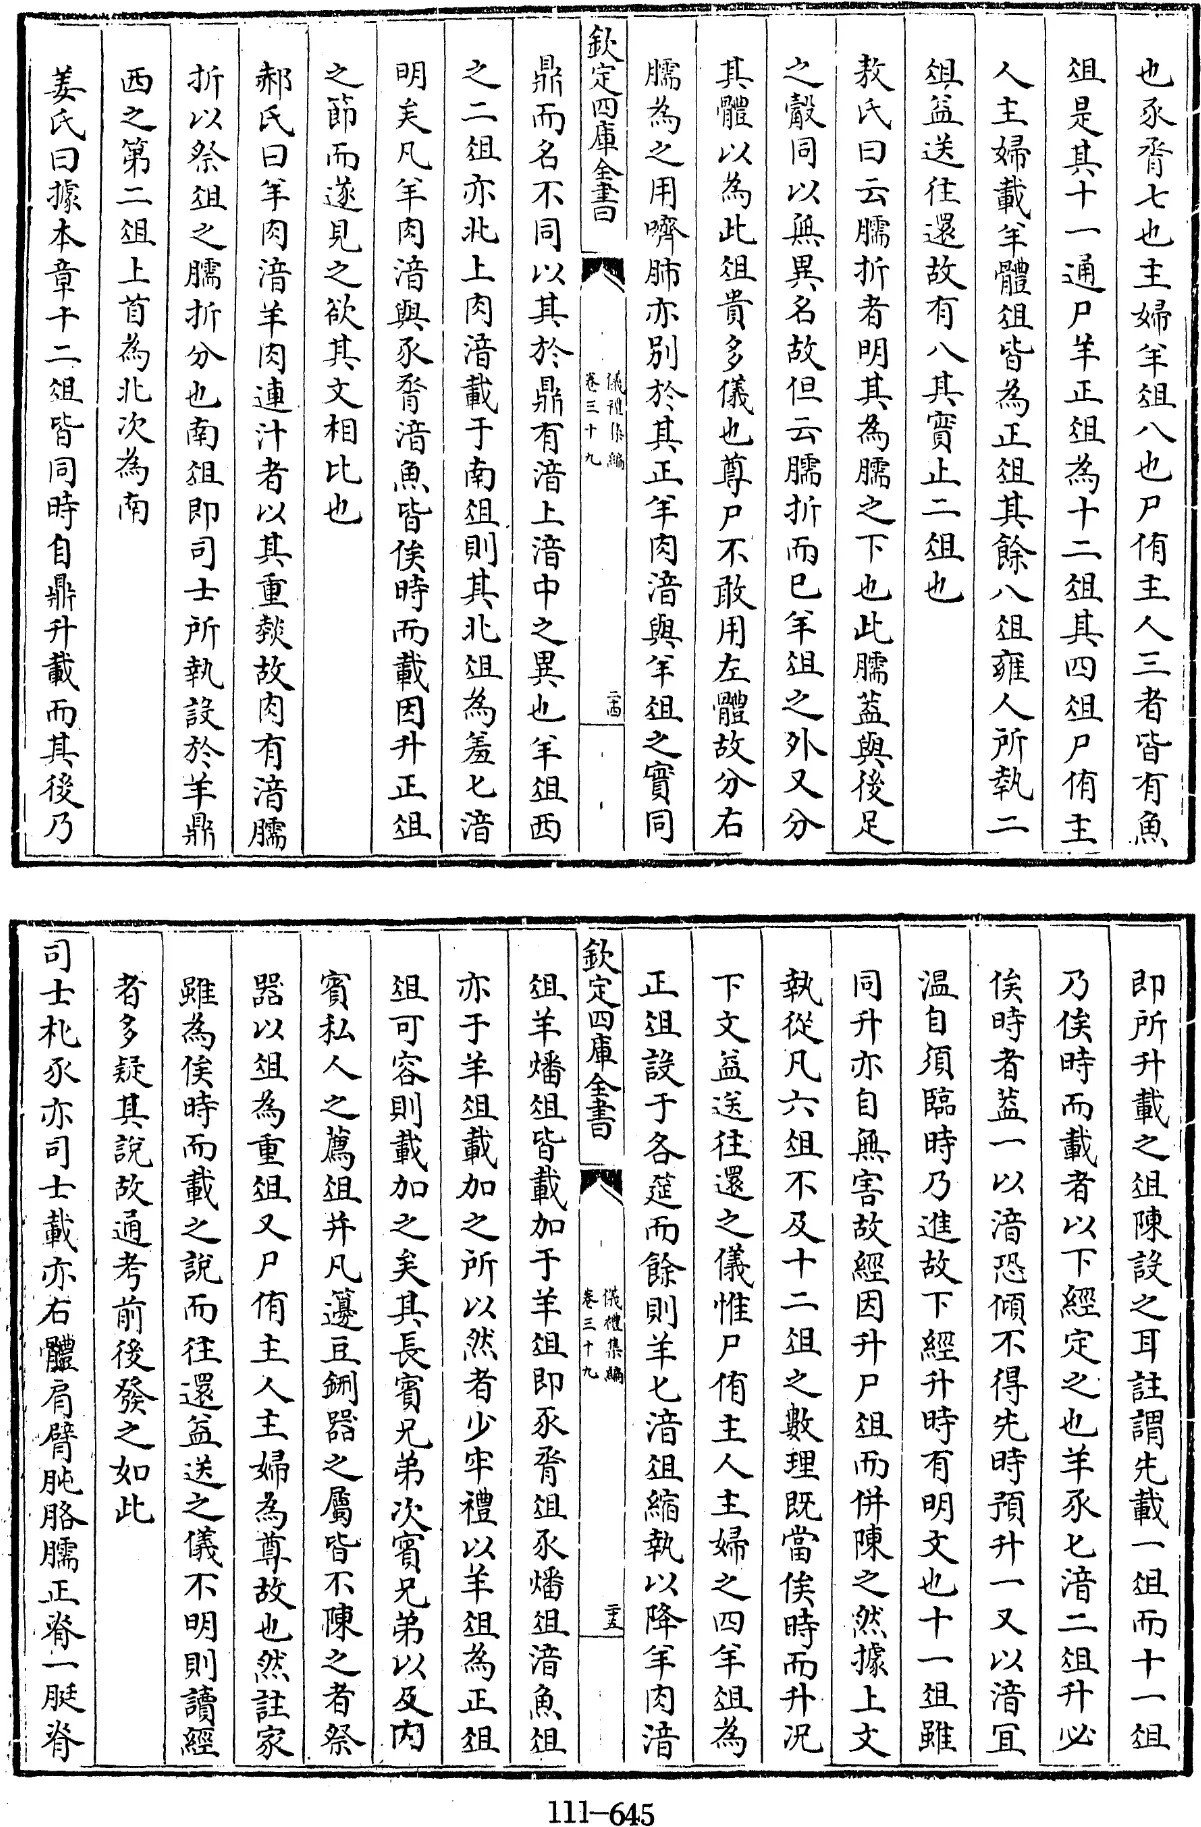 也豕脀七也主婦羊俎八也尸侑主人三者皆有魚
俎是其十一通尸羊正俎為十二俎其四俎尸侑主
人主婦載羊體俎皆為正俎其餘八俎雍人所執二
俎益送往還故有八其實止二俎也
敖氏曰云臑折者明其為臑之下也此臑蓋與後足
之㲉同以無異名故但云臑折而已羊俎之外又分
其體以為此俎貴多儀也尊尸不敢用左體故分右
臑為之用嚌肺亦别於其正羊肉湆與羊俎之實同
欽定四庫全書
儀禮集編
卷三十九
二十四
鼎而名不同以其於鼎有湆上湆中之異也羊俎西
之二俎亦北上肉湆載于南俎則其北俎為羞匕湆
明矣凡羊肉湆與豕脀湆魚皆俟時而載因升正俎
之節而遂見之欲其文相比也
郝氏曰羊肉湆羊肉連汁者以其重㷟故肉有湆臑
折以祭俎之臑折分也南俎即司士所執設於羊鼎
西之第二俎上首為北次為南
姜氏曰據本章十二俎皆同時自鼎升載而其後乃
即所升載之俎陳設之耳註謂先載一俎而十一俎
乃俟時而載者以下經定之也羊豕匕湆二俎升必
俟時者蓋一以湆恐傾不得先時預升一又以湆宜
温自須臨時乃進故下經升時有明文也十一俎雖
同升亦自無害故經因升尸俎而併陳之然據上文
執從凡六俎不及十二俎之數理既當俟時而升况
下文益送往還之儀惟尸侑主人主婦之四羊俎為
正俎設于各筵而餘則羊匕湆俎縮執以降羊肉湆
欽定四庫全書
儀禮集編
卷三十九
二十五
俎羊燔俎皆載加于羊俎即豕脀俎豕燔俎湆魚俎
亦于羊俎載加之所以然者少牢禮以羊俎為正俎
俎可容則載加之矣其長賔兄弟次賔兄弟以及内
賔私人之薦俎并凡籩豆鉶器之屬皆不陳之者祭
器以俎為重俎又尸侑主人主婦為尊故也然註家
雖為俟時而載之說而往還益送之儀不明則讀經
者多疑其說故通考前後發之如此
司士朼豕亦司士載亦右體肩臂肫胳臑正脊一脡脊
111-645